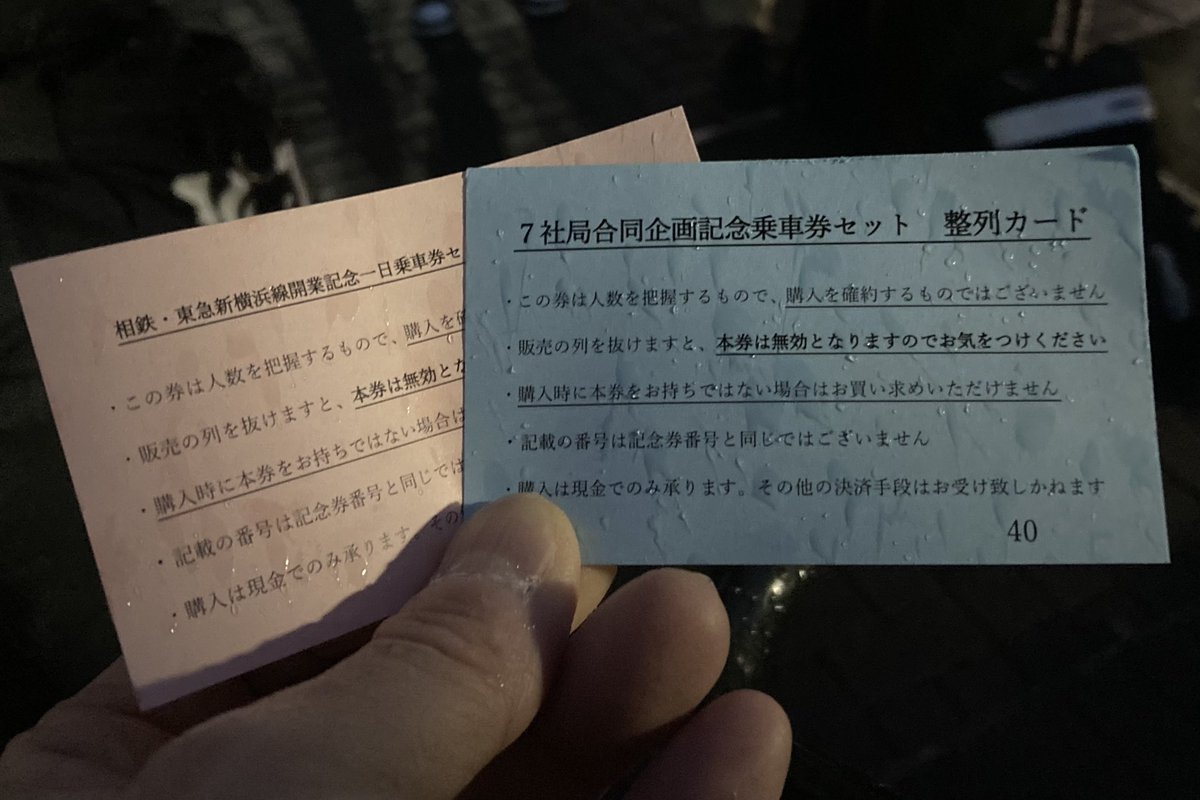 相鉄・東急新横浜線開業記念一日乗車券セ
・この券は人数を把握するもので、購入を確
・販売の列を抜けますと、本券は無効とな
・購入時に本券をお持ちではない場合は
・記載の番号は記念券番号と同じでは
・購入は現金でのみ承ります。その
7社局合同企画記念乗車券セット　整列カード
・この券は人数を把握するもので、購入を確約するものではございません
・販売の列を抜けますと、本券は無効となりますのでお気をつけください
・購入時に本券をお持ちではない場合はお買い求めいただけません
・記載の番号は記念券番号と同じではございません
・購入は現金でのみ承ります。その他の決済手段はお受け致しかねます
40